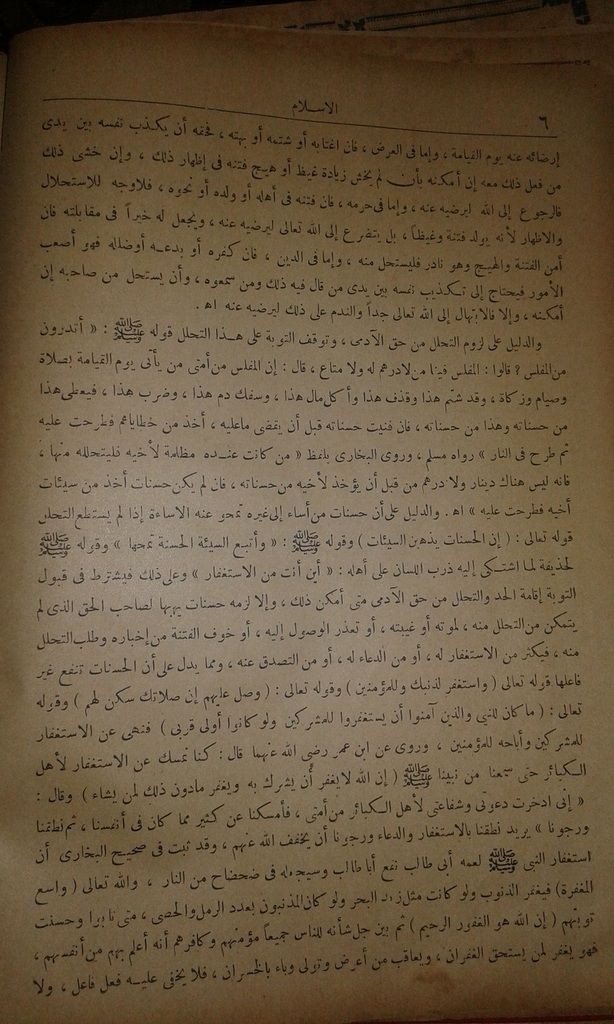 ٦
الاسلام
إرضائه عنه يوم القيامة ، وإما فى العرض ، فان اغتابه أو شتمه أو بهته ، فحقه أن يكذب نفسه بين يدى
من فعل ذلك معه إن أمكنه بأن لم يخش زيادة غيظ أو هيج فتنه فى إظهار ذلك ، وإن خشى ذلك
فالرجوع إلى الله ليرضيه عنه ، وإما فى حرمه ، فان فتنه فى أهله أو ولده أو نحوه ، فلاوجه للاستحلال
والاظهار لأنه يولد فتنة وغيظاً ، بل يتضرع إلى الله تعالى ليرضيه عنه ، ويجعل له خيراً فى مقابلته فان
أمن الفتنة والهيج وهو نادر فليستحل منه ، وإما فى الدين ، فان كفره أو بدعـه أوضلله فهو أصعب
الأمور فيحتاج إلى تكذيب نفسه بين يدى من قال فيه ذلك ومن سمعوه ، وأن يستحل من صاحبه إن
أمكنه ، وإلا فالابتهال إلى الله تعالى جداً والندم على ذلك ليرضيه عنه اه .
والدليل على لزوم التحلل من حق الآدمى ، وتوقف التوبة على هذا التحلل قوله ﷺ : « أتدرون
من المفلس ؟ قالوا : المفلس فينا من لادرهم له ولا متاع ، قال : إن المفلس من أمتى من يأتى يوم القيامة بصلاة
وصيام وزكاة ، وقد شتم هذا وقذف هذا وأكل مال هذا ، وسفك دم هذا ، وضرب هذا ، فيعطى هذا
من حسناته وهذا من حسناته ، فان فنيت حسناته قبل أن يقضى ماعليه ، أخذ من خطاياهم فطرحت عليه
ثم طرح فى النار » رواه مسلم ، وروى البخارى بلفظ « من كانت عنده مظلمة لأخيه فليتحلله منها ،
فانه ليس هناك دينار ولا درهم من قبل أن يؤخذ لأخيه من حسناته ، فان لم يكن حسنات أخذ من سيئات
أخيه فطرحت عليه » اه . والدليل على أن حسنات من أساء إلى غيره تمحو عنه الاساءة إذا لم يستطع التحلل
قوله تعالى : ( إن الحسنات يذهبن السيئات ) وقوله ﷺ : « وأتبع السيئة الحسنة تمحها » وقوله ﷺ
لحذيفة لما اشتكى إليه ذرب اللسان على أهله : « أين أنت من الاستغفار » وعلى ذلك فيشترط فى قبول
التوبة إقامة الحد والتحلل من حق الآدمى متى أمكن ذلك ، وإلا لزمه حسنات يهبها لصاحب الحق الذى لم
يتمكن من التحلل منه ، لموته أو غيبته ، أو تعذر الوصول إليه ، أو خوف الفتنة من إخباره وطلب التحلل
منه ، فيكثر من الاستغفار له ، أو من الدعاء له ، أو من التصدق عنه ، ومما يدل على أن الحسنات تنفع غير
فاعلها قوله تعالى ( واستغفر لذنبك وللمؤمنين ) وقوله تعالى : ( وصل عليهم إن صلاتك سكن لهم ) وقوله
تعالى : ( ما كان للنبى والذين آمنوا أن يستغفروا للمشركين ولو كانوا أولى قربى ) فنهى عن الاستغفار
للمشركين وأباحه للمؤمنين ، وروى عن ابن عمر رضى الله عنهما قال : كنا نمسك عن الاستغفار لأهل
الكبائر حتى سمعنا من نبينا ﷺ ( إن الله لايغفر أن يشرك به ويغفر مادون ذلك لمن يشاء ) وقال :
« إنى ادخرت دعوتى وشفاعتى لأهل الكبائر من أمتى ، فأمسكنا عن كثير مما كان فى أنفسنا ، ثم نطقنا
ورجونا » يريد نطقنا بالاستغفار والدعاء ورجونا أن يخفف الله عنهم ، وقد ثبت فى صحيح البخارى أن
استغفار النبى ﷺ لعمه أبى طالب نفع أبا طالب وسيجعله فى ضحضاح من النار ، والله تعالى ( واسع
المغفرة ) فيغفر الذنوب ولو كانت مثل زبد البحر ولو كان المذنبون بعدد الرمل والحصى ، متى تابوا وحسنت
توبتهم ( إن الله هو الغفور الرحيم ) ثم بين جل شأنه للناس جميعاً مؤمنهم وكافرهم أنه أعلم بهم من أنفسهم ،
فهو يغفر لمن يستحق الغفران ، ويعاقب من أعرض وتولى وباء بالخسران ، فلا يخفى عليـه فعل فاعل ، ولا